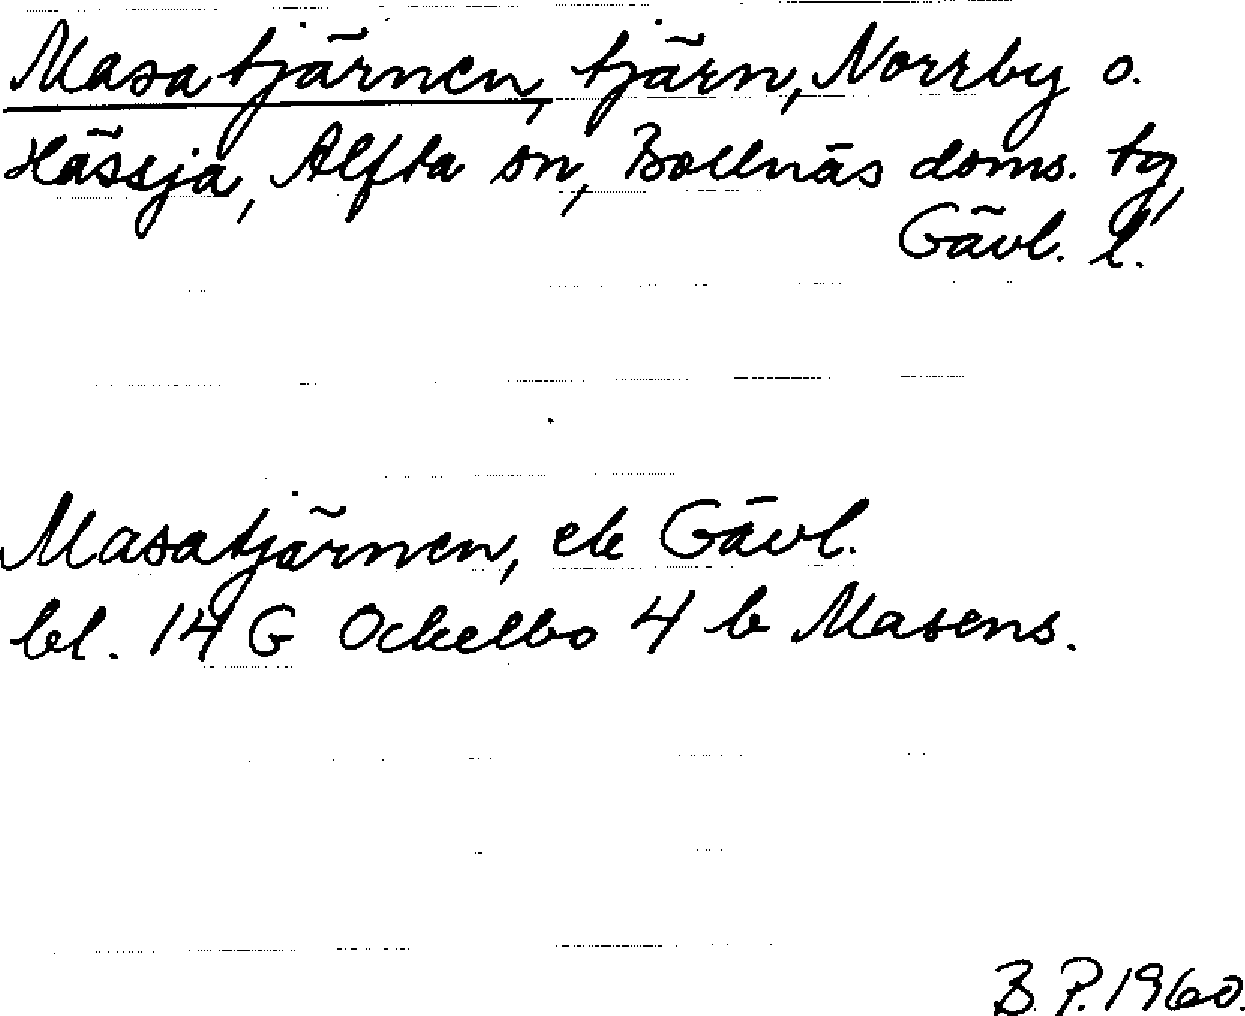 Masatjärnen, tjärn, Norrby o.
Hässja, Alfta sn, Bollnäs doms. tg,
Gävl. l.
Masatjärnen, ek Gävl.
bl. 14 G Ockelbo 4 b Masens.
B P. 1960.